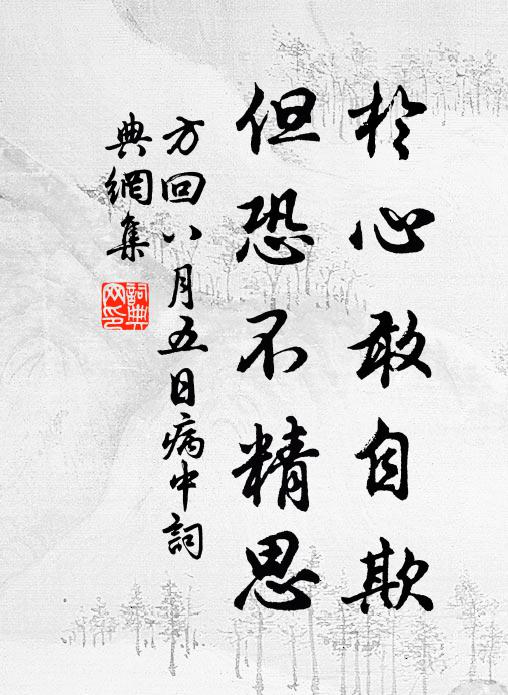 於心敢自欺
但恐不精思
方回八月五日病中詞
典網集
詞典
网印